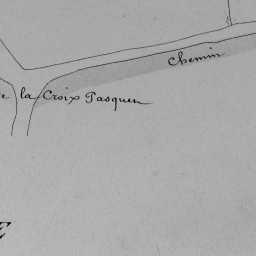 Chemin
la Croix Pasquer
E